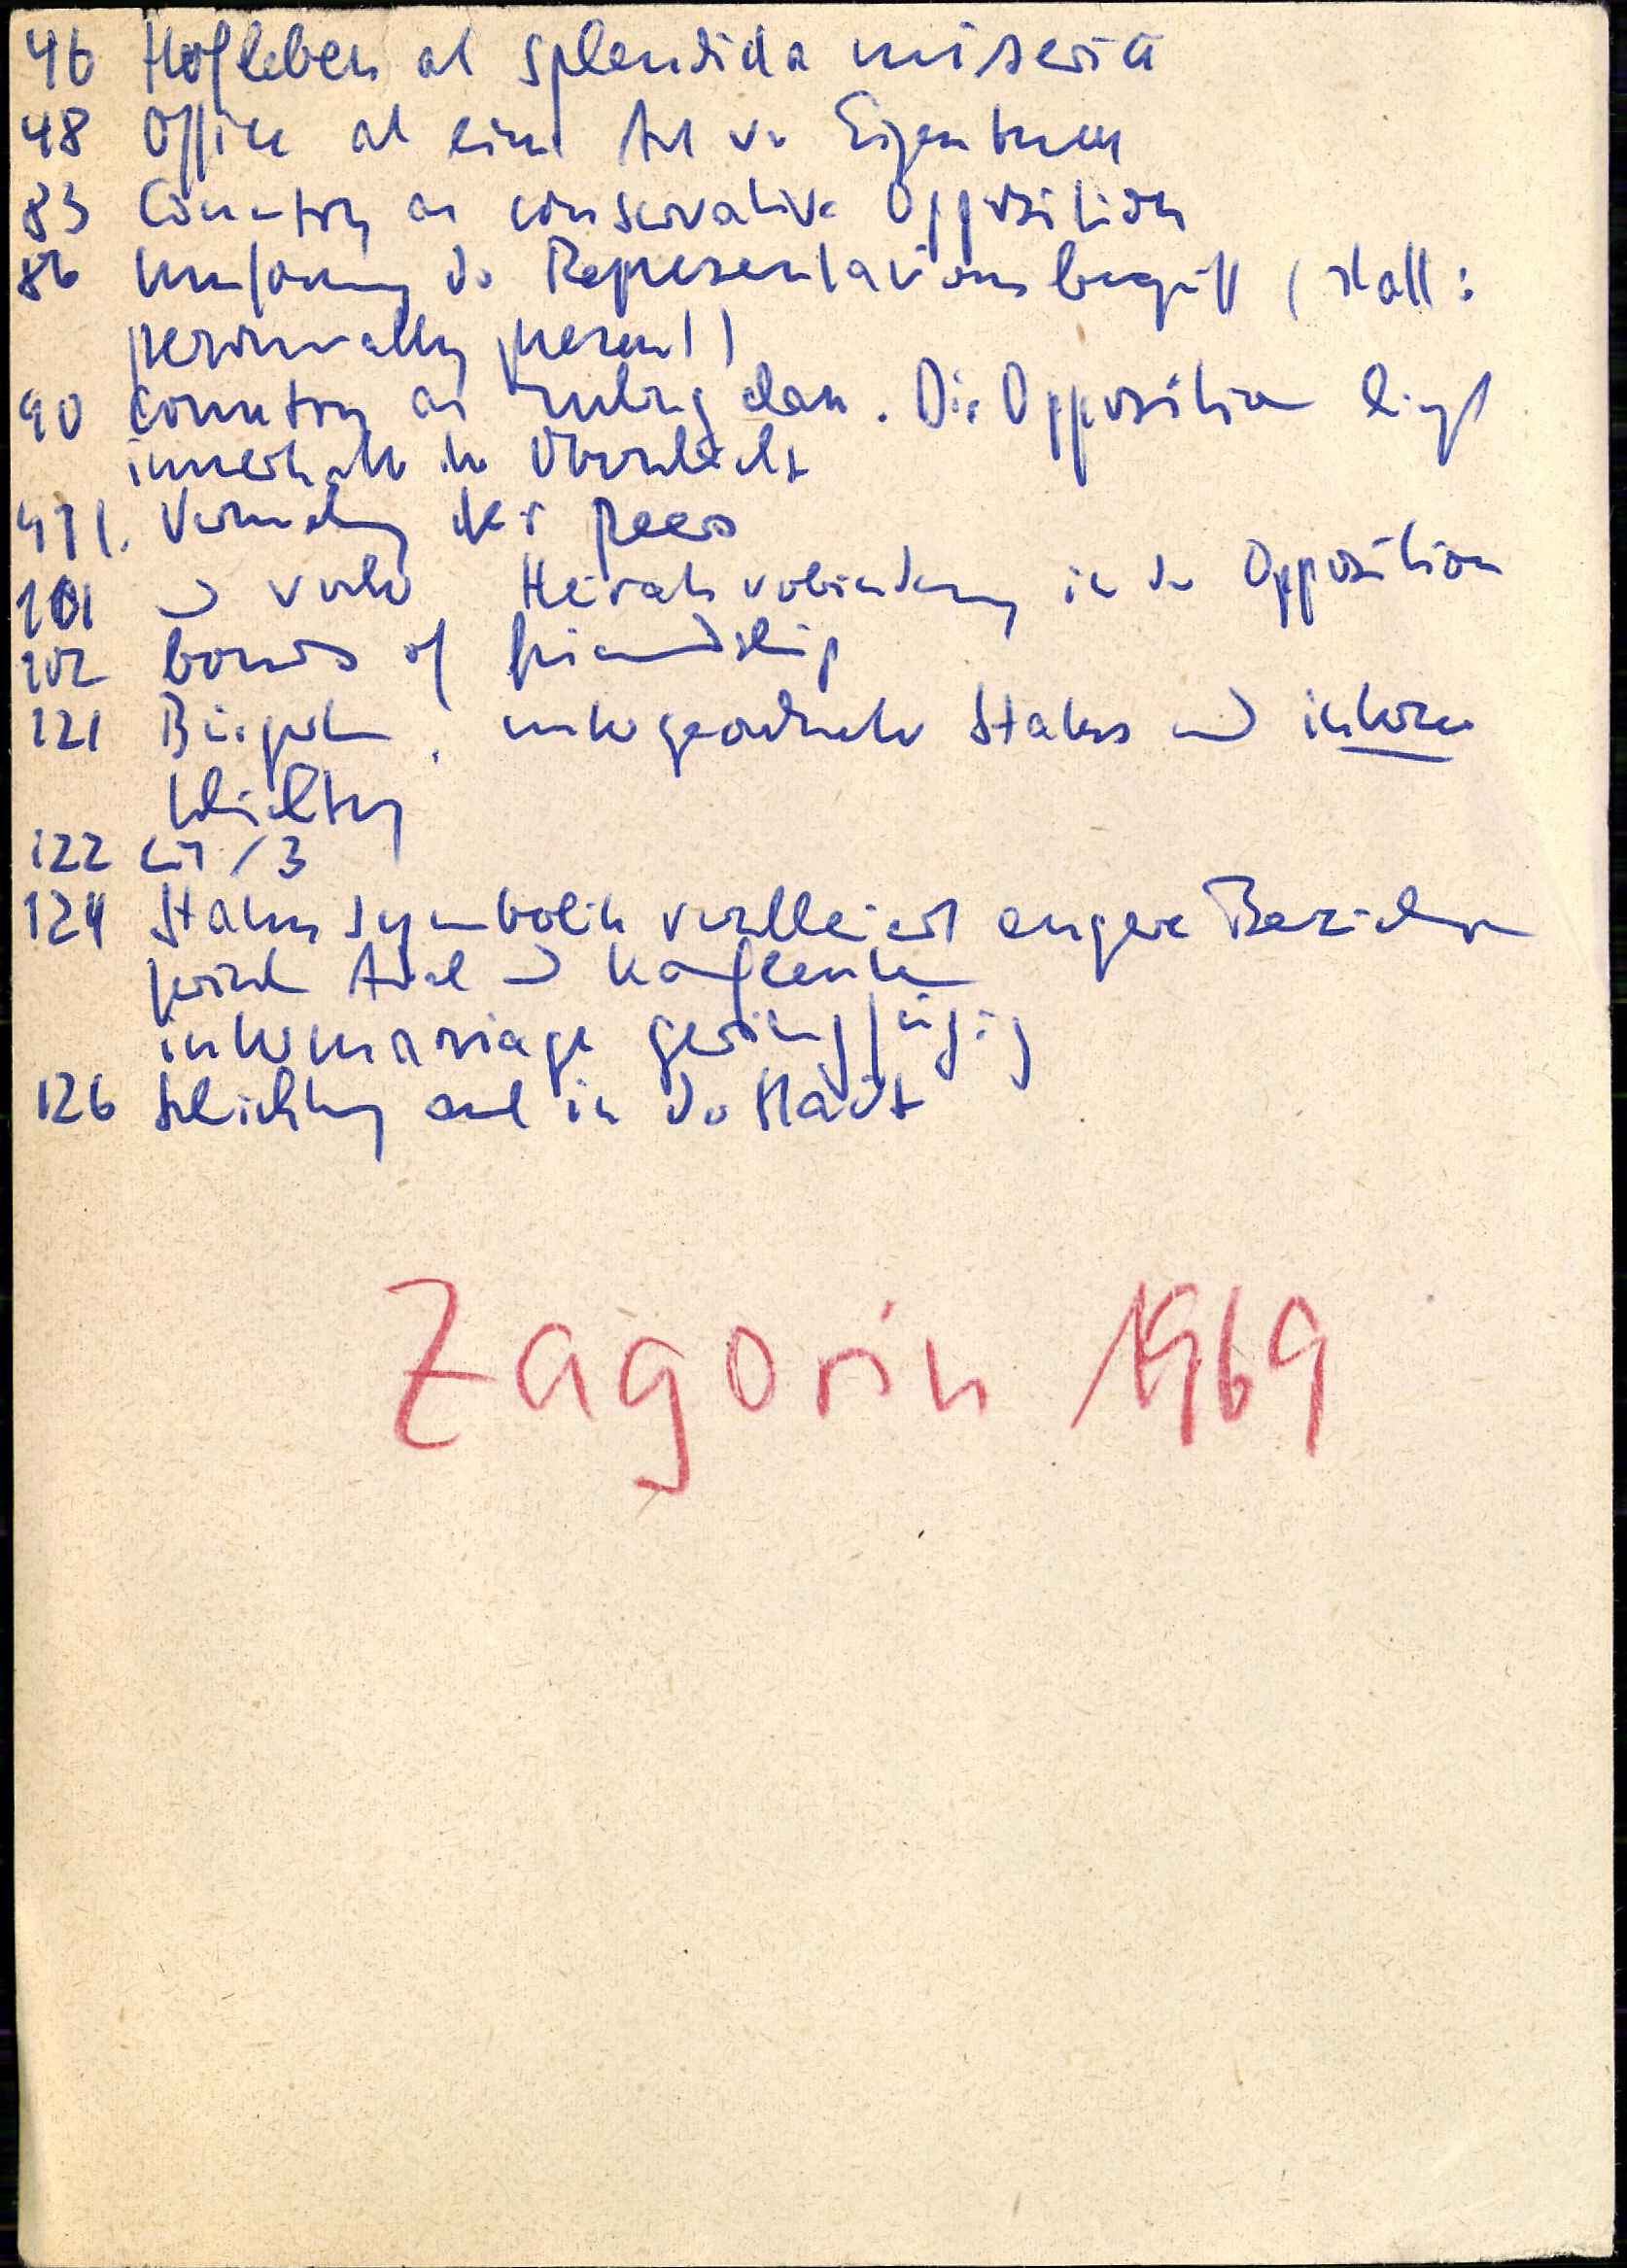 46 Hofleben als splendida miseria
48 Office als eine Art von Eigentum
83 Country as conservative Opposition
86 Umformung des Representationsbegriff (statt:
personally present)
90 Country as ruling class. Die Opposition liegt
innerhalb der Oberschicht
91f. Vermehrung der peers
101 und Heiratsverbindung in der Opposition
102 bonds of friendship
121 untergeordneter Status und interne
Schichtung
122 Cit / 3
124 Statussymbolik verschleiert engere Beziehungen
zwischen Adel und Kaufleuten
intermarriage geringfügig
126 Schichtung auch in der Stadt
Zagorin 1969